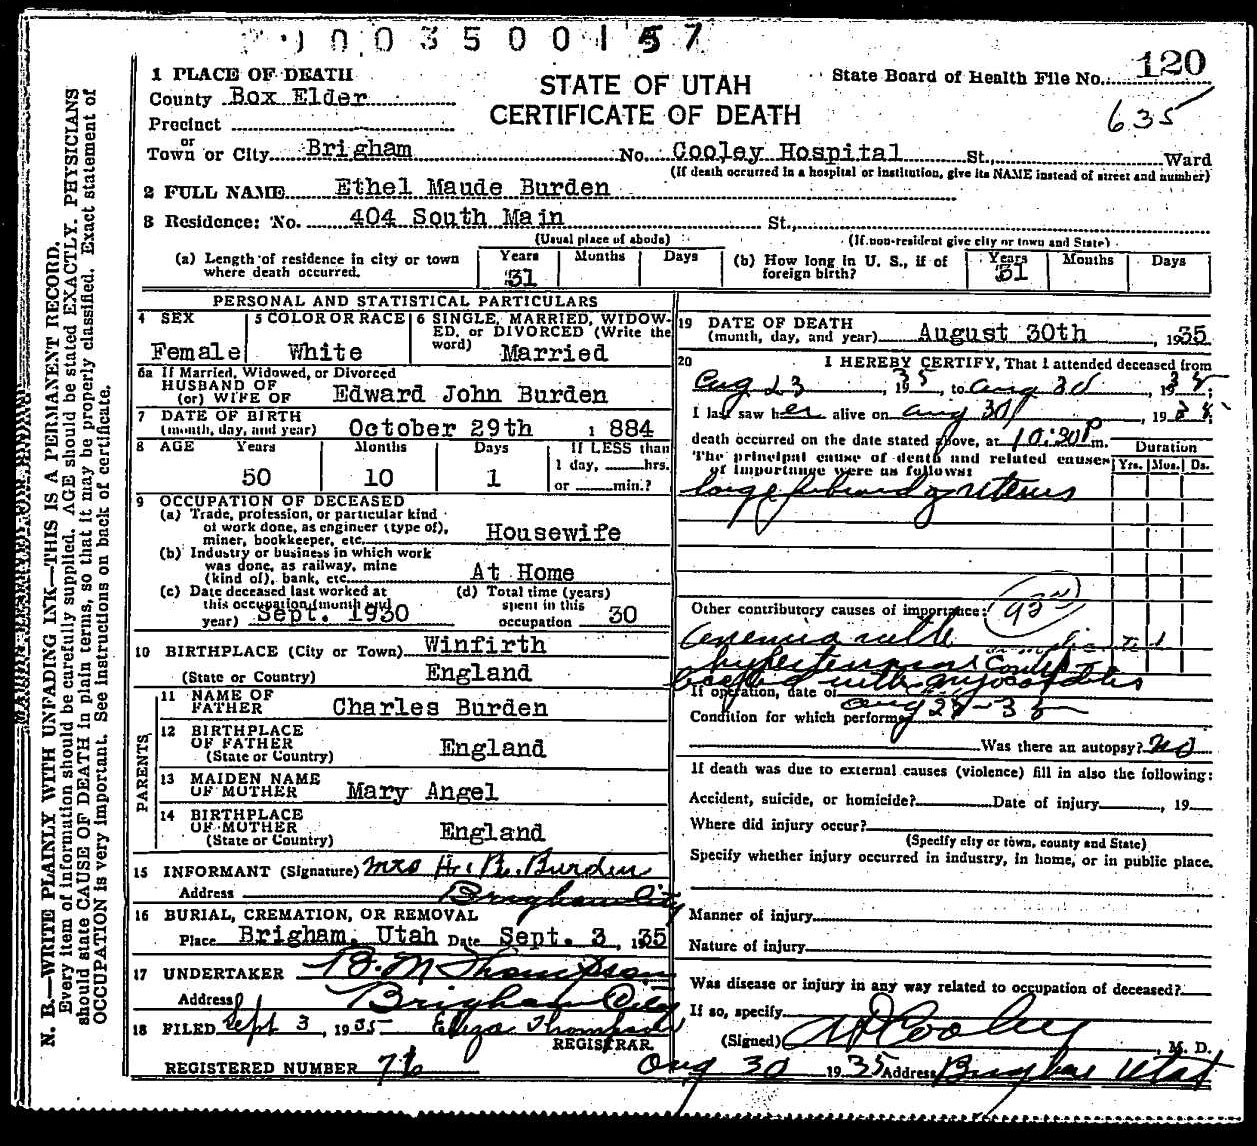 003500157
120
STATE OF UTAH
CERTIFICATE OF DEATH
State Board of Health File No.
635
1 PLACE OF DEATH
County Box Elder
Precinct
or
Town or City Brigham No. Cooley Hospital St., Ward
(If death occurred in a hospital or institution, give its NAME instead of street and number)
2 FULL NAME Ethel Maude Burden
3 Residence: No. 404 South Main St.,
(Usual place of abode) (If non-resident give city or town and State)
(a) Length of residence in city or town where death occurred. Years 31 Months Days
(b) How long in U. S., if of foreign birth? Years 31 Months Days
PERSONAL AND STATISTICAL PARTICULARS
4 SEX Female
5 COLOR OR RACE White
6 SINGLE, MARRIED, WIDOWED, or DIVORCED (Write the word) Married
6a If Married, Widowed, or Divorced
HUSBAND OF
(or) WIFE OF Edward John Burden
7 DATE OF BIRTH
(month, day, and year) October 29th 1884
8 AGE Years 50 Months 10 Days 1
If LESS than
1 day, hrs.
or min.?
9 OCCUPATION OF DECEASED
(a) Trade, profession, or particular kind
of work done, as engineer (type of),
miner, bookkeeper, etc. Housewife
(b) Industry or business in which work
was done, as railway, mine
(kind of), bank, etc. At Home
(c) Date deceased last worked at
this occupation (month and
year) Sept. 1930
(d) Total time (years)
spent in this
occupation 30
10 BIRTHPLACE (City or Town) Winfirth
(State or Country) England
PARENTS
11 NAME OF
FATHER Charles Burden
12 BIRTHPLACE
OF FATHER
(State or Country) England
13 MAIDEN NAME
OF MOTHER Mary Angel
14 BIRTHPLACE
OF MOTHER
(State or Country) England
15 INFORMANT (Signature) Mrs H. B. Burden
Address Brigham City
16 BURIAL, CREMATION, OR REMOVAL
Place Brigham, Utah Date Sept. 3, 1935
17 UNDERTAKER B. M Thompson
Address Brigham City
18 FILED Sept 3, 1935 Eliza Thompson
REGISTRAR.
REGISTERED NUMBER 76
19 DATE OF DEATH
(month, day, and year) August 30th, 1935
20 I HEREBY CERTIFY, That I attended deceased from
Aug 23, 1935, to Aug 30, 1935
I last saw her alive on Aug 30, 1935
death occurred on the date stated above, at 10:20 P m.
The principal cause of death and related causes
of importance were as follows:
Duration
Yrs. Mos. Ds.
large fibroid of uterus
Other contributory causes of importance:
Anemia with
hypertension
with myocarditis
If operation, date of Aug 28-35
Condition for which performed
Was there an autopsy? no
If death was due to external causes (violence) fill in also the following:
Accident, suicide, or homicide? Date of injury, 19
Where did injury occur?
(Specify city or town, county and State)
Specify whether injury occurred in industry, in home, or in public place.
Manner of injury
Nature of injury
Was disease or injury in any way related to occupation of deceased?
If so, specify
(Signed) Cooley, M. D.
Aug 30 1935 Address Brigham Utah
N. B.—WRITE PLAINLY WITH UNFADING INK—THIS IS A PERMANENT RECORD.
Every item of information should be carefully supplied. AGE should be stated EXACTLY. PHYSICIANS
should state CAUSE OF DEATH in plain terms, so that it may be properly classified. Exact statement of
OCCUPATION is very important. See instructions on back of certificate.